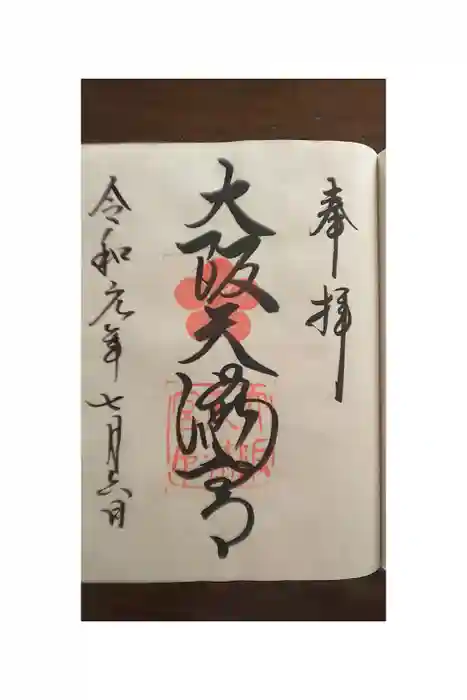 奉拝
大阪天満宮
令和元年七月六日